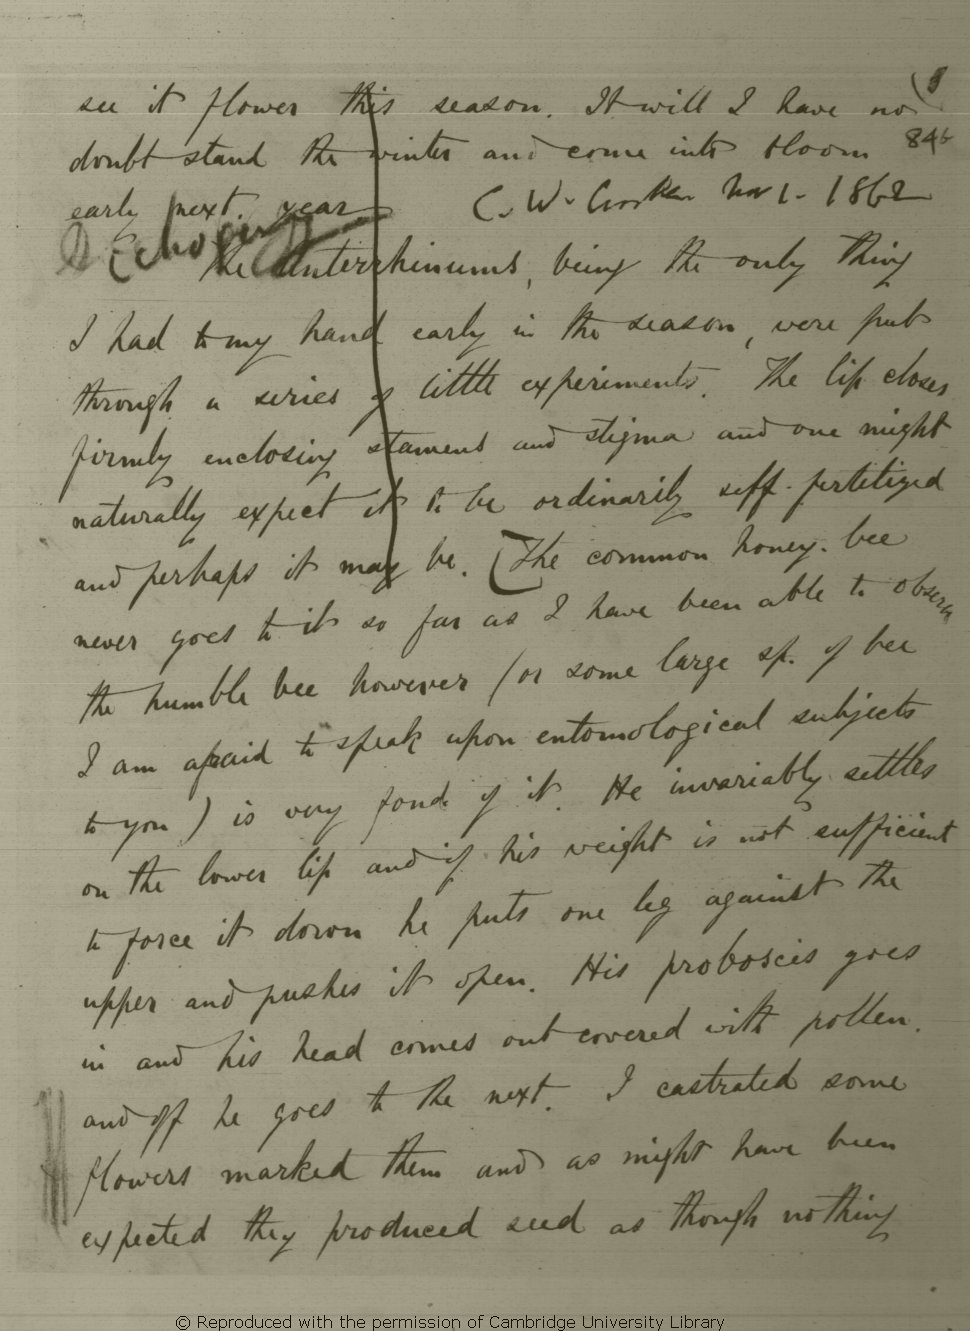 see it flower this season. It will I have no
84b
doubt stand the winter and come into bloom
early next. year C. W. Crocker Nov 1. 1862
The Anterrhinums, being the only thing
I had to my hand early in the season, were put
through a series of little experiments. The lip closes
firmly enclosing stamens and stigma and one might
naturally expect it to be ordinarily self-fertilized
and perhaps it may be. [The common honey-bee
never goes to it so far as I have been able to observe
the humble bee however (or some large sp. of bee
I am afraid to speak upon entomological subjects
to you) is very fond of it. He invariably settles
on the lower lip and if his weight is not sufficient
to force it down he puts one leg against the
upper and pushes it open. His proboscis goes
in and his head comes out covered with pollen.
and off he goes to the next. I castrated some
flowers marked them and as might have been
expected they produced seed as though nothing
© Reproduced with the permission of Cambridge University Library